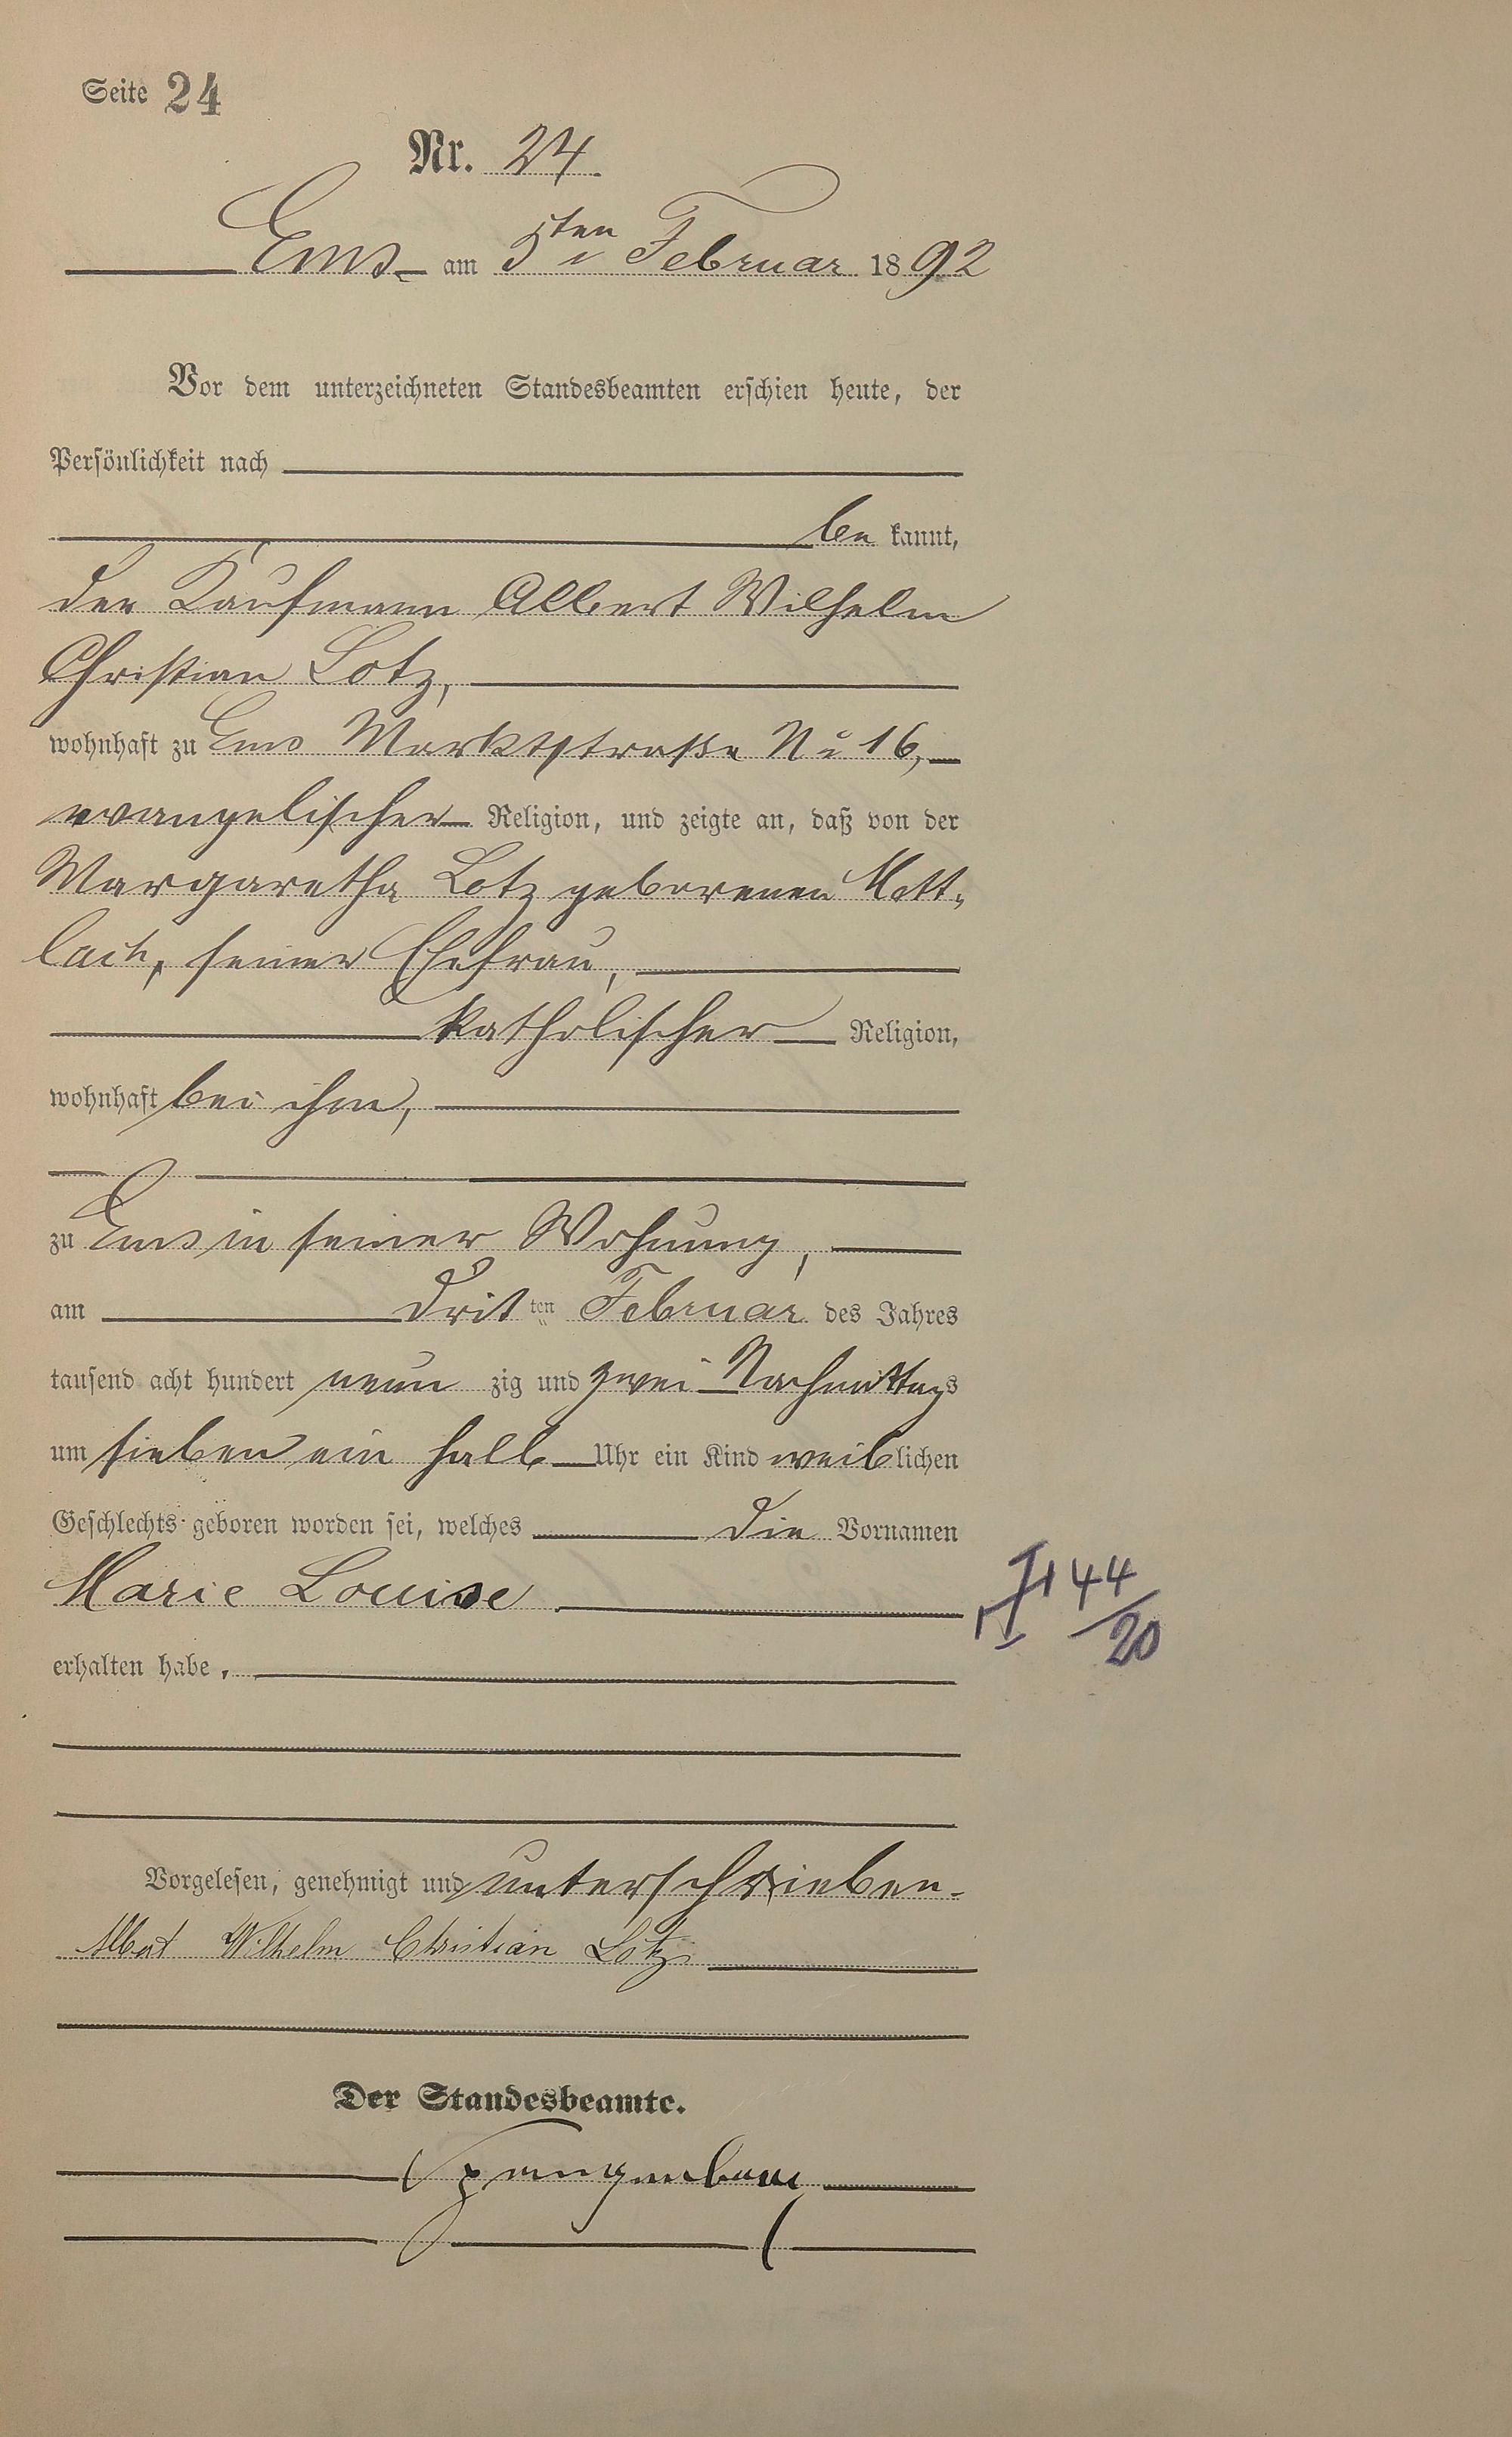 Seite 24
Nr. 24.
Ems am 5ten Februar 1892
Vor dem unterzeichneten Standesbeamten erschien heute, der
Persönlichkeit nach
be kannt,
der Kaufmann Albert Wilhelm
Christian Lotz,
wohnhaft zu Ems Marktstraße No 16,
evangelischer Religion, und zeigte an, daß von der
Margaretha Lotz geborenen Mott-
lach, seiner Ehefrau,
katholischer Religion,
wohnhaft bei ihm,
zu Ems in seiner Wohnung,
am dritten Februar des Jahres
tausend acht hundert neun zig und zwei Nachmittags
um sieben ein halb Uhr ein Kind weiblichen
Geschlechts geboren worden sei, welches die Vornamen
Marie Louise
44
20
erhalten habe.
Vorgelesen, genehmigt und unterschrieben.
Albert Wilhelm Christian Lotz
Der Standesbeamte.